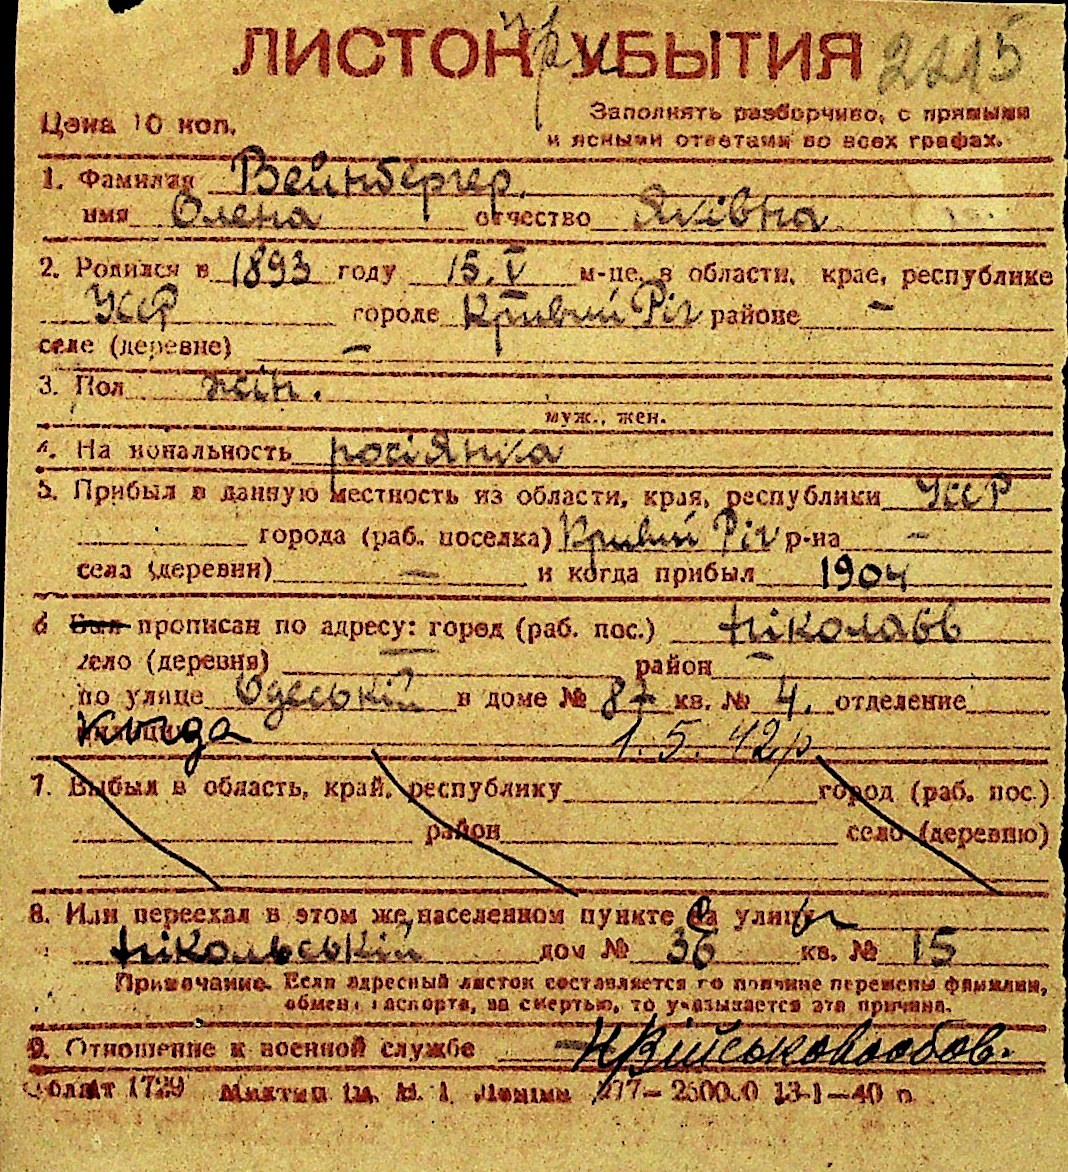 ЛИСТОК УБЫТИЯ 2215
Цена 10 коп.
Заполнять разборчиво, с прямыми
и ясными ответами во всех графах.
1. Фамилия Вейнбергер
имя Олена отчество Яківна
2. Родился в 1893 году 15.V м-це, в области, крае, республике
УССР городе Кривий Ріг районе —
селе (деревне) —
3. Пол жін.
муж., жен.
4. Национальность росіянка
5. Прибыл в данную местность из области, края, республики УССР
города (раб. поселка) Кривий Ріг р-на —
села (деревни) — и когда прибыл 1904
6 Был прописан по адресу: город (раб. пос.) Ніколаєв
село (деревня) — район —
по улице Одеський в доме № 87 кв. № 4. отделение
милиции 1.5.42р
7. Выбыл в область, край, республику город (раб. пос.)
район село (деревню)
8. Или переехал в этом же населенном пункте на улицу
Нікольській дом № 36 кв. № 15
Примечание. Если адресный листок составляется по причине перемены фамилии,
обмена паспорта, за смертью, то указывается эта причина.
9. Отношение к военной службе — Н/Військовообов.
Облліт 1799 Миктип ім. В. І. Леніна 277— 13-1—40 п.